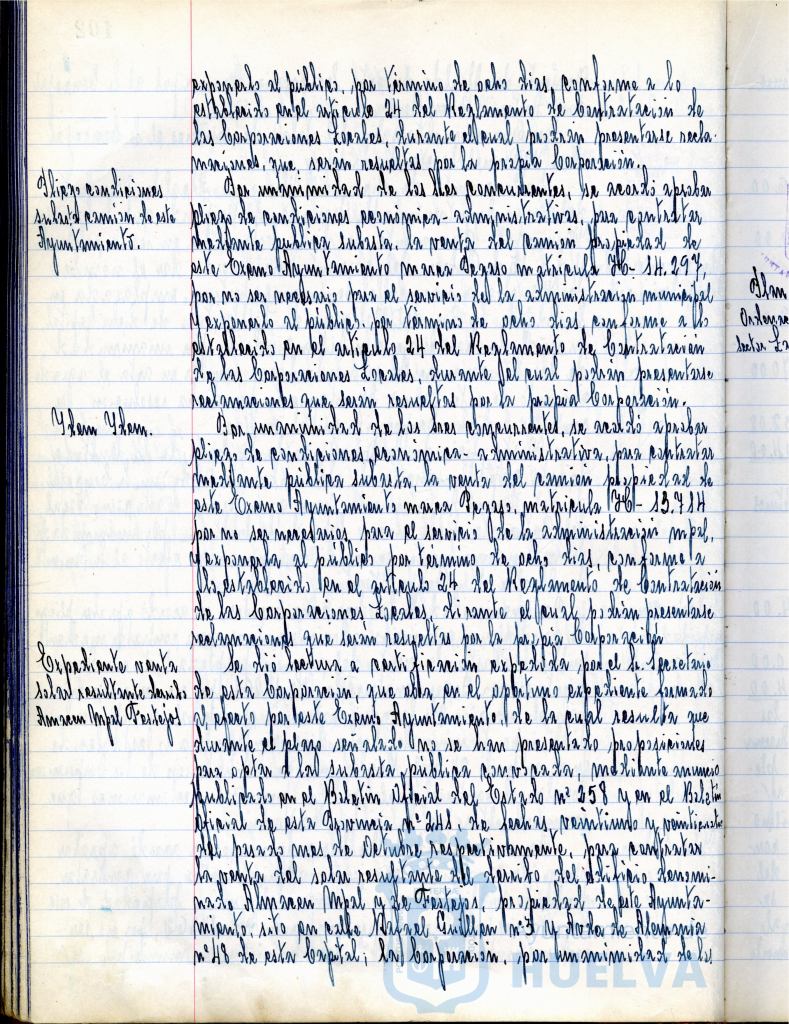 exponerlo al público, por término de ocho días, conforme a lo
establecido en el artículo 24 del Reglamento de Contratación de
las Corporaciones Locales, durante el cual, podrán presentarse recla-
maciones, que serán resueltas por la propia Corporación.
Pliego condiciones
subasta camión de este
Ayuntamiento.
Por unanimidad de los tres concurrentes, se acordó aprobar
pliego de condiciones económica-administrativas, para contratar
mediante pública subasta, la venta del camión propiedad de
este Excmo Ayuntamiento marca Pegaso matrícula H- 14.297,
por no ser necesario para el servicio de la administración municipal
y exponerlo al público, por término de ocho días conforme a lo
establecido en el artículo 24 del Reglamento de Contratación
de las Corporaciones Locales, durante el cual podrán presentarse
reclamaciones que serán resueltas por la propia Corporación.
Ytem Ytem.
Por unanimidad de los tres concurrentes, se acordó aprobar
pliego de condiciones económica-administrativa, para contratar
mediante pública subasta, la venta del camión propiedad de
este Excmo Ayuntamiento marca Pegaso, matrícula H- 13.714
por no ser necesarios, para el servicio de la administración mpal,
y exponerla al público por término de ocho días, conforme a
lo establecido en el artículo 24 del Reglamento de Contratación
de las Corporaciones Locales, durante el cual podrán presentarse
reclamaciones que serán resueltas por la propia Corporación
Expediente venta
solar resultante derribo
Almacen Mpal Festejos
Se dió lectura a certificación expedida por el Sr. Secretario
de esta Corporación, que obra en el oportuno expediente formado
al efecto por este Excmo Ayuntamiento, de la cual resulta que
durante el plazo señalado no se han presentado proposiciones
para optar a la subasta pública convocada, mediante anuncio
publicado en el Boletín Oficial del Estado nº 258 y en el Boletín
Oficial de esta Provincia nº 241, de fechas, y
del pasado mes de Octubre respectivamente, para contratar
la venta del solar resultante del derribo del edificio denomi-
nado Almacen Mpal y de Festejos, propiedad de este Ayunta-
miento, sito en calle Rafael Guillén nº 3 y Avda de Alemania
nº 48 de esta Capital; la Corporación, por unanimidad de los
HUELVA